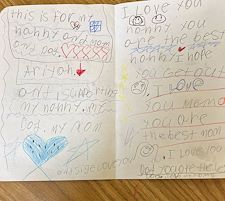 this is for my
nonny and mom
and Dad.
Ariyah.
and is supering
my nonny. my
Dad. my mom
I Love you
nonny you
are the best
nonny I hope
you get out
I Love
you Mom
you are
the best mom
I Love you
Dad you are the be